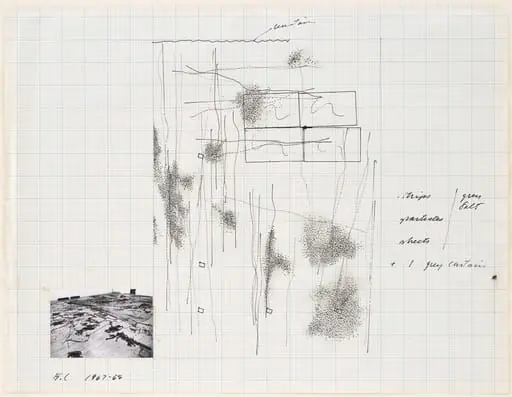 curtain
strips | grey
felt
particles
sheets
+ 1 grey curtain
1967-69